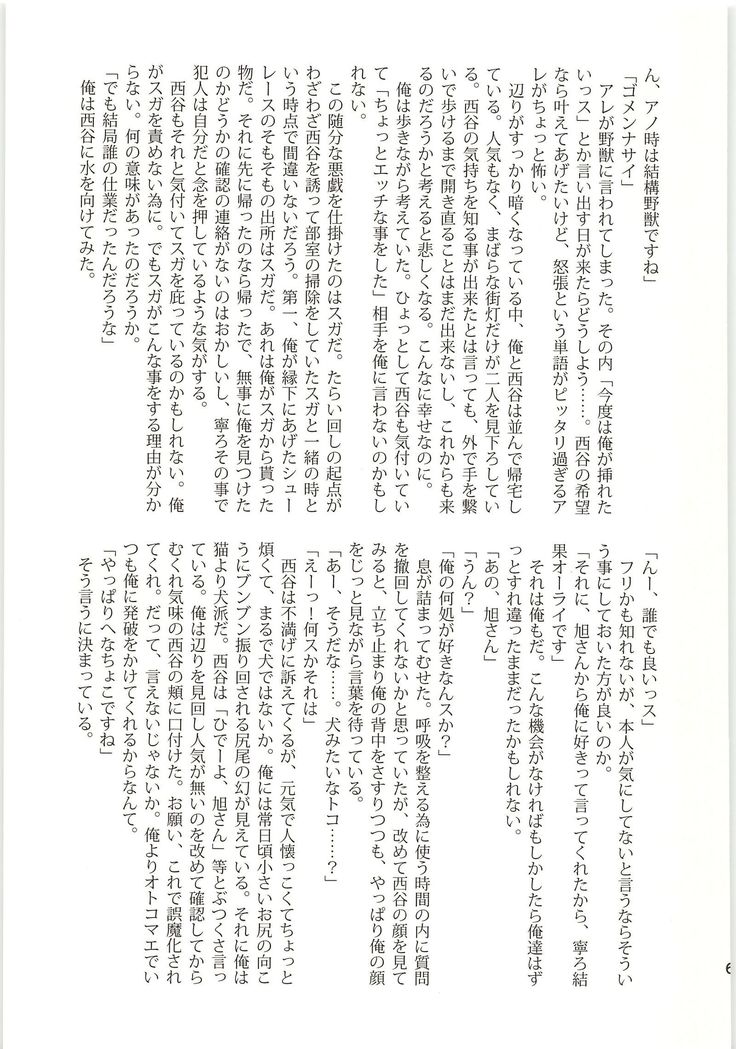 ん、アノ時は結構野獣ですね」
「ゴメンナサイ」
アレが野獣に言われてしまった。その内「今度は俺が挿れた
いっス」とか言い出す日が来たらどうしよう……。西谷の希望
なら叶えてあげたいけど、怒張という単語がピッタリ過ぎるア
レがちょっと怖い。
辺りがすっかり暗くなっている中、俺と西谷は並んで帰宅し
ている。人気もなく、まばらな街灯だけが二人を見下ろしてい
る。西谷の気持ちを知る事が出来たとは言っても、外で手を繋
いで歩けるまで開き直ることはまだ出来ないし、これからも来
るのだろうかと考えると悲しくなる。こんなに幸せなのに。
俺は歩きながら考えていた。ひょっとして西谷も気付いてい
て「ちょっとエッチな事をした」相手を俺に言わないのかもし
れない。
この随分な悪戯を仕掛けたのはスガだ。たらい回しの起点が
わざわざ西谷を誘って部室の掃除をしていたスガと一緒の時と
いう時点で間違いないだろう。第一、俺が縁下にあげたシュー
レースのそもそもの出所はスガだ。あれは俺がスガから貰った
物だ。それに先に帰ったのなら帰ったで、無事に俺を見つけた
のかどうかの確認の連絡がないのはおかしいし、寧ろその事で
犯人は自分だと念を押しているような気がする。
西谷もそれと気付いてスガを庇っているのかもしれない。俺
がスガを責めない為に。でもスガがこんな事をする理由が分か
らない。何の意味があったのだろうか。
「でも結局誰の仕業だったんだろうな」
俺は西谷に水を向けてみた。
「んー、誰でも良いっス」
フリかも知れないが、本人が気にしてないと言うならそうい
う事にしておいた方が良いのか。
「それに、旭さんから俺に好きって言ってくれたから、寧ろ結
果オーライです」
それは俺もだ。こんな機会がなければもしかしたら俺達はず
っとすれ違ったままだったかもしれない。
「あの、旭さん」
「うん?」
「俺の何処が好きなんスか?」
息が詰まってむせた。呼吸を整える為に使う時間の内に質問
を撤回してくれないかと思っていたが、改めて西谷の顔を見て
みると、立ち止まり俺の背中をさすりつつも、やっぱり俺の顔
をじっと見ながら言葉を待っている。
「あー、そうだな……。犬みたいなトコ……?」
「えーっ!何スかそれは」
西谷は不満げに訴えてくるが、元気で人懐っこくてちょっと
煩くて、まるで犬ではないか。俺には常日頃小さいお尻の向こ
うにブンブン振り回される尻尾の幻が見えている。それに俺は
猫より犬派だ。西谷は「ひでーよ、旭さん」等とぶつくさ言っ
ている。俺は辺りを見回し人気が無いのを改めて確認してから
むくれ気味の西谷の頬に口付けた。お願い、これで誤魔化され
てくれ。だって、言えないじゃないか。俺よりオトコマエでい
つも俺に発破をかけてくれるからなんて。
「やっぱりへなちょこですね」
そう言うに決まっている。
6